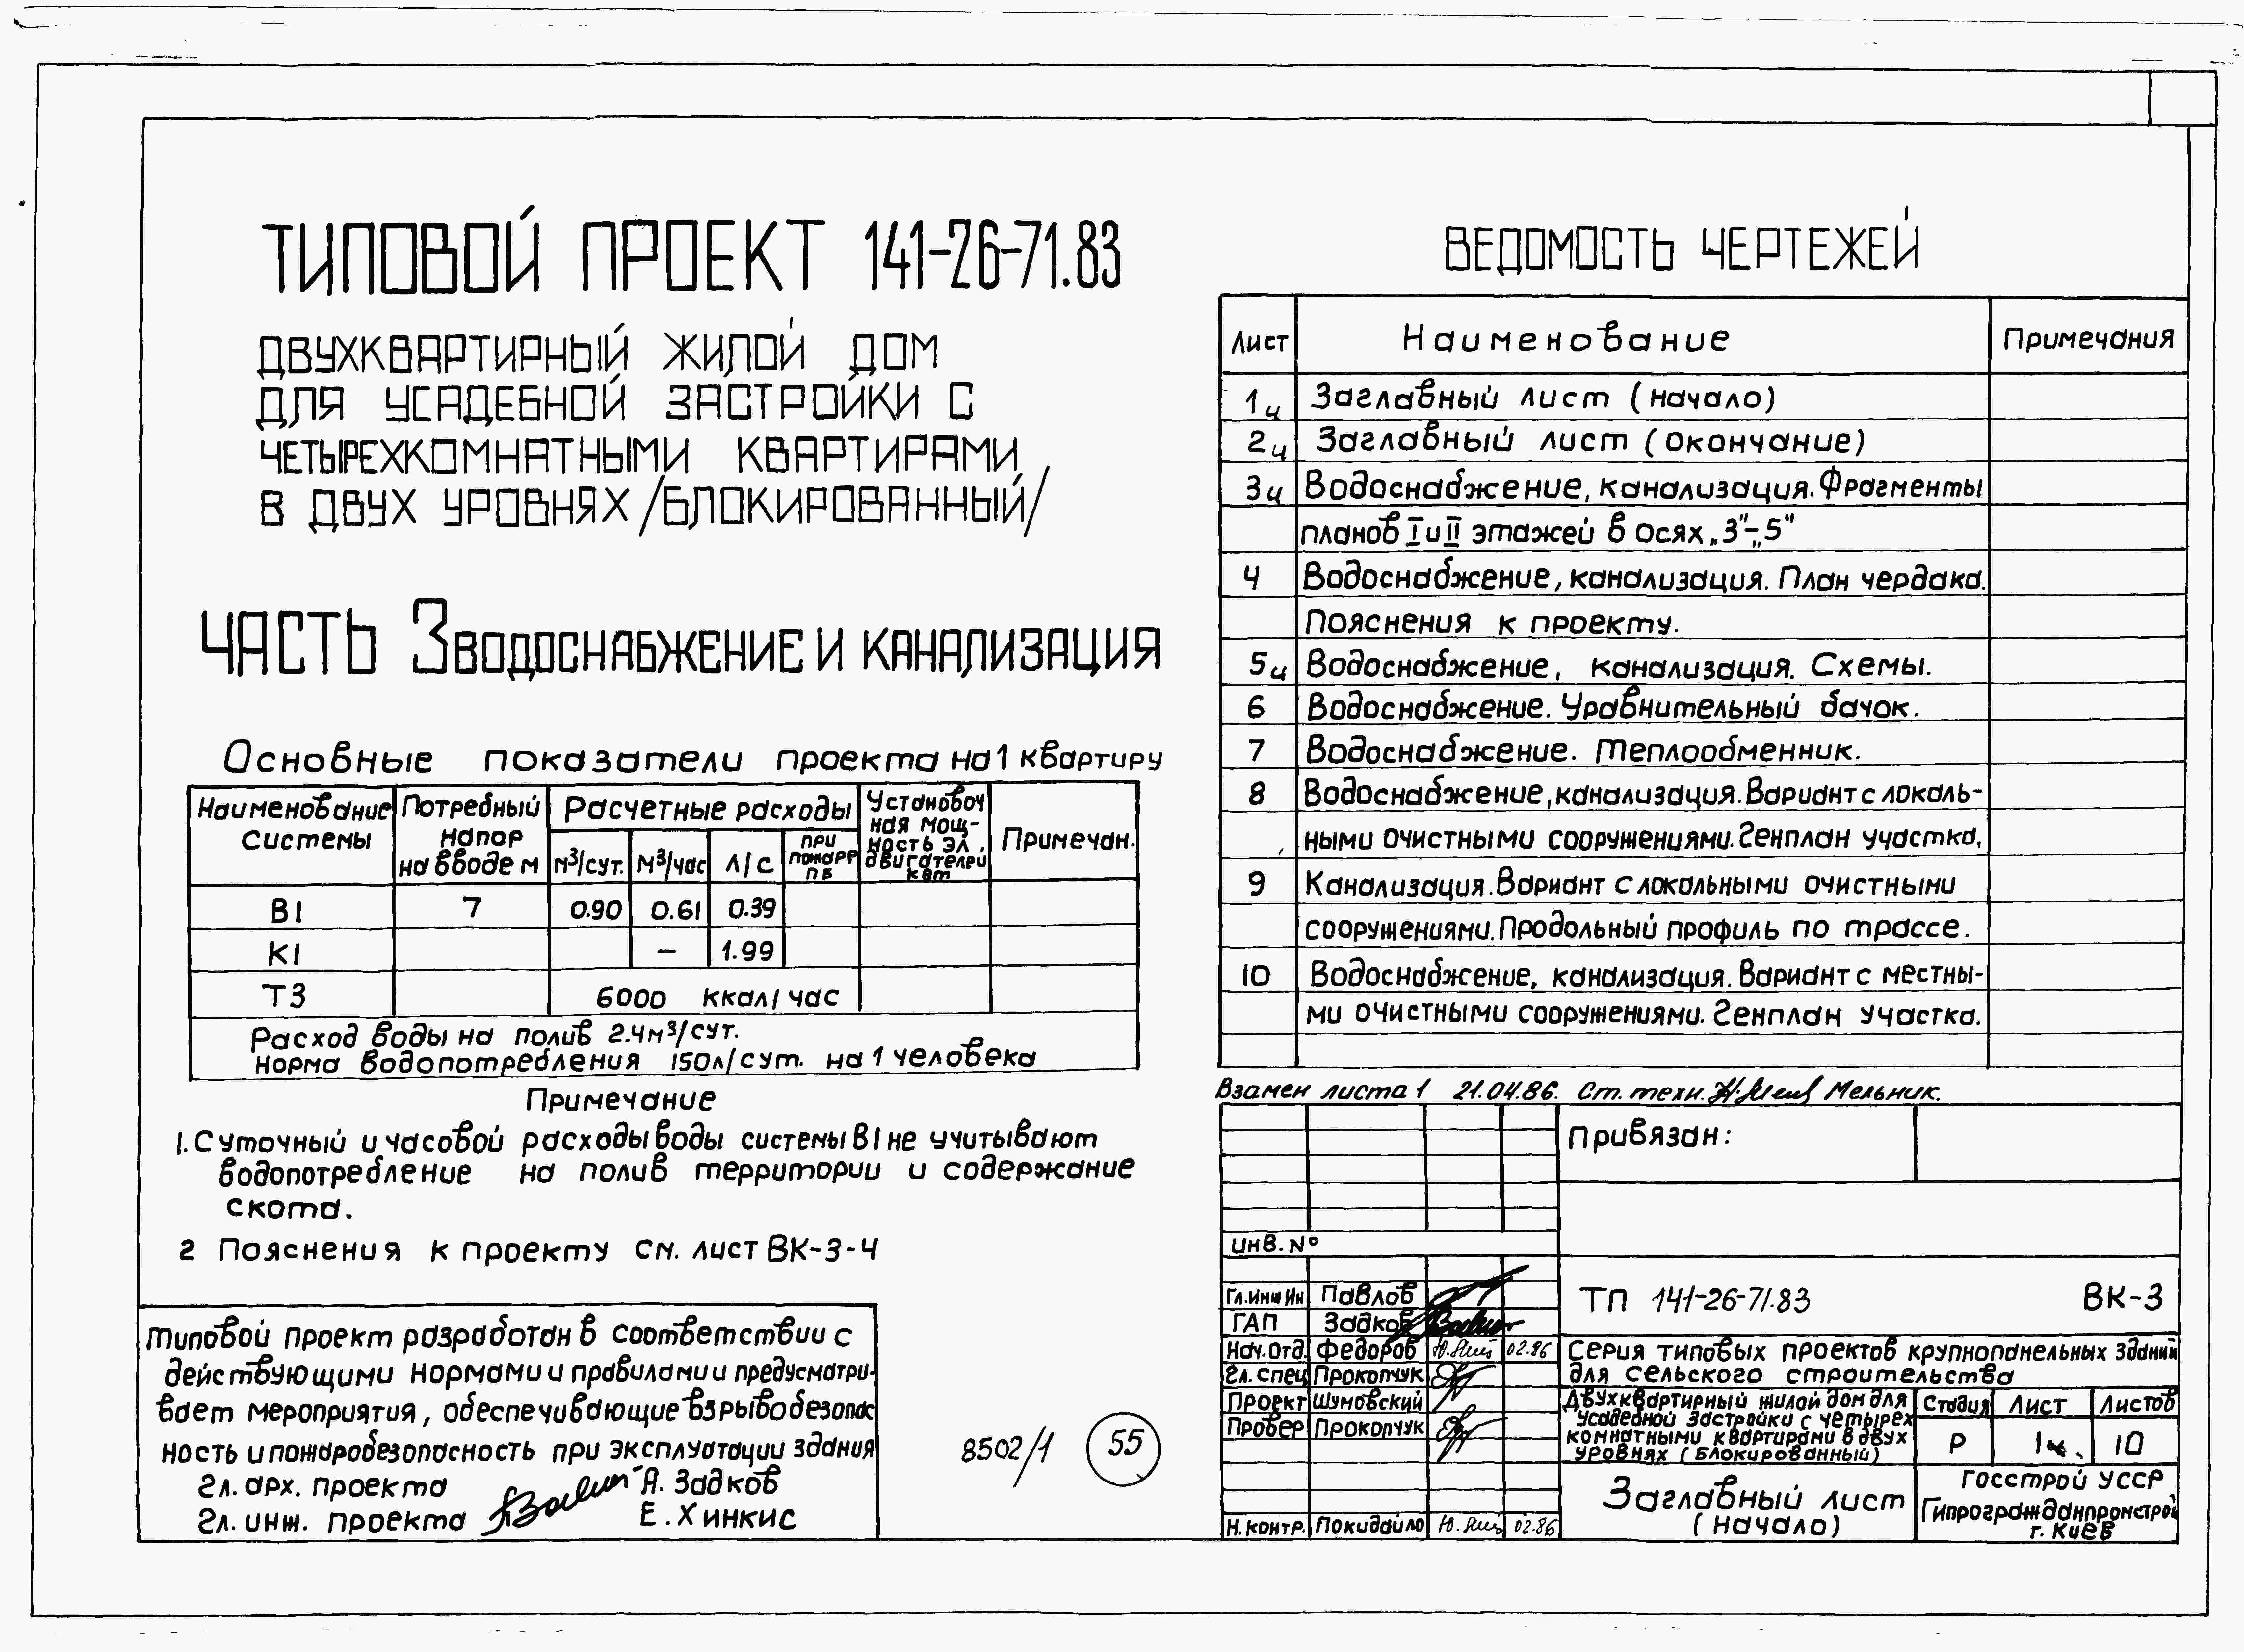 ТИПОВОЙ ПРОЕКТ 141-26-71.83
ДВУХКВАРТИРНЫЙ ЖИЛОЙ ДОМ
ДЛЯ УСАДЕБНОЙ ЗАСТРОЙКИ С
ЧЕТЫРЕХКОМНАТНЫМИ КВАРТИРАМИ
В ДВУХ УРОВНЯХ /БЛОКИРОВАННЫЙ/
ЧАСТЬ 3 ВОДОСНАБЖЕНИЕ И КАНАЛИЗАЦИЯ
Основные показатели проекта на 1 квартиру
Наименование системы | Потребный напор на вводе м | Расчетные расходы | Установоч ная мощ- ность эл. двигателей квт | Примечан.
м³/сут. | м³/час | л/с | при пожаре ПБ
В1 | 7 | 0.90 | 0.61 | 0.39
К1 | – | 1.99
Т3 | 6000 ккал/час
Расход воды на полив 2.4м³/сут.
Норма водопотребления 150л/сут. на 1 человека
Примечание
1. Суточный и часовой расходы воды системы В1 не учитывают
водопотребление на полив территории и содержание
скота.
2 Пояснения к проекту см. лист ВК-3-4
Типовой проект разработан в соответствии с
действующими нормами и правилами и предусматри-
вает мероприятия, обеспечивающие взрывобезопас
ность и пожаробезопасность при эксплуатации здания
Гл. арх. проекта А. Задков
Гл. инж. проекта Е. Хинкис
8502/1 55
ВЕДОМОСТЬ ЧЕРТЕЖЕЙ
Лист | Наименование | Примечания
1и Заглавный лист (начало)
2и Заглавный лист (окончание)
3и Водоснабжение, канализация. Фрагменты
планов I и II этажей в осях „3"-„5"
4 Водоснабжение, канализация. План чердака.
Пояснения к проекту.
5и Водоснабжение, канализация. Схемы.
6 Водоснабжение. Уравнительный бачок.
7 Водоснабжение. Теплообменник.
8 Водоснабжение, канализация. Вариант с локаль-
ными очистными сооружениями. Генплан участка,
9 Канализация. Вариант с локальными очистными
сооружениями. Продольный профиль по трассе.
10 Водоснабжение, канализация. Вариант с местны-
ми очистными сооружениями. Генплан участка.
Взамен листа 1 21.04.86. Ст. техн. Мельник.
Привязан:
Инв. N°
Гл. Инж Ин Павлов
ГАП Задков
Нач. отд. Федоров 02.86
Гл. спец Прокопчук
Проект Шумовский
Провер Прокопчук
Н. контр. Покидайло 02.86
ТП 141-26-71.83 ВК-3
Серия типовых проектов крупнопанельных зданий
для сельского строительства
Двухквартирный жилой дом для
усадебной застройки с четырех
комнатными квартирами в двух
уровнях (блокированный)
Стадия | Лист | Листов
Р | 1и. | 10
Заглавный лист
(начало)
Госстрой УССР
Гипрогражданпромстрой
г. Киев